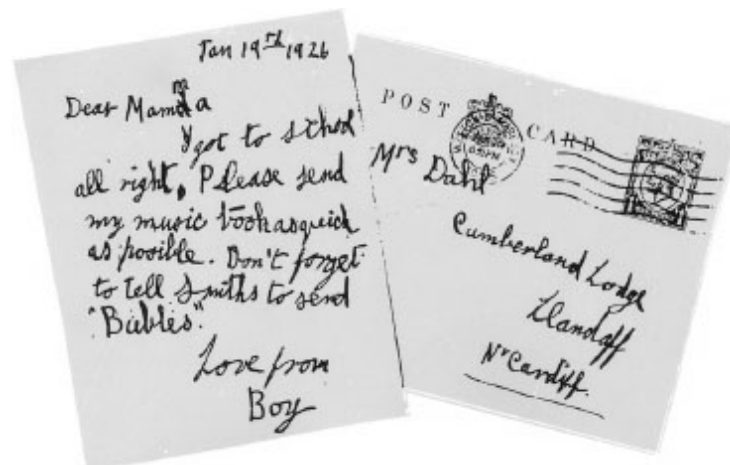 Jan 19th 1926
Dear Mamma
I got to school
all right, Please send
my music book as quick
as posible. Don't forget
to tell Smiths to send
"Bubbles".
Love from
Boy
POST CARD
Mrs Dahl
Cumberland Lodge
Llandaff
Nr Cardiff.